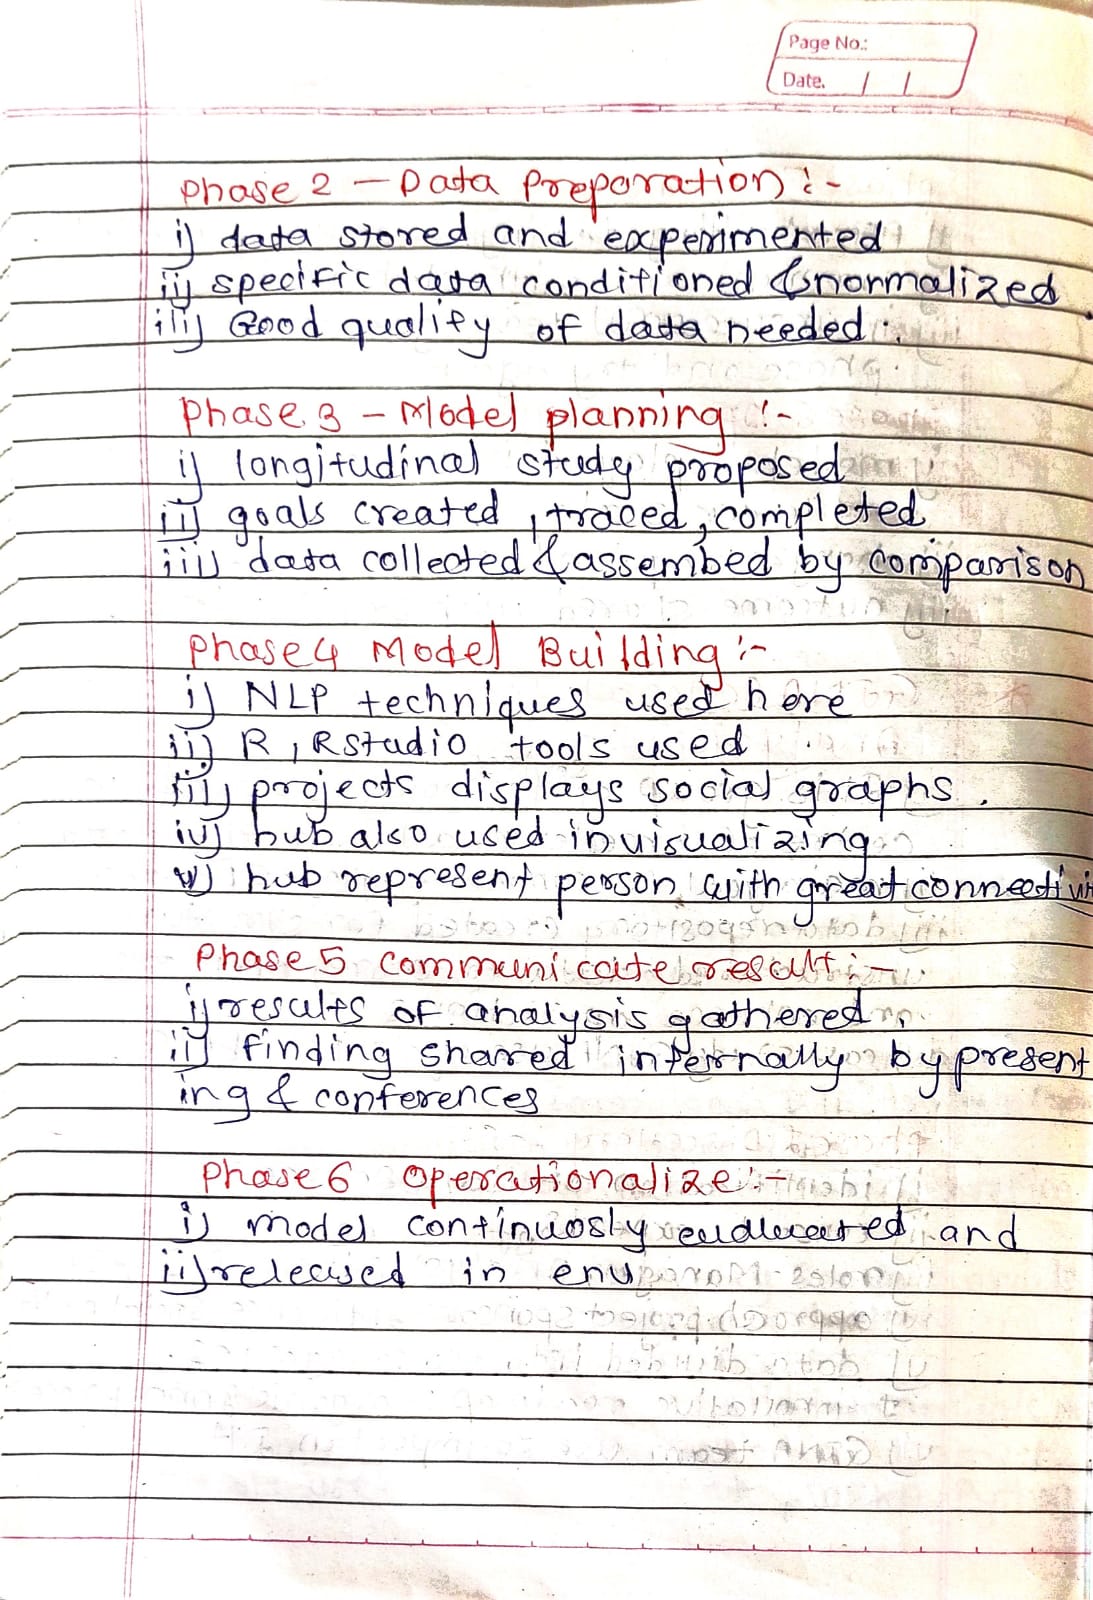 Page No.:
Date. / /
Phase 2 – Data Preparation :-
i) data stored and experimented
ii) specific data conditioned & normalized
iii) Good quality of data needed.
Phase 3 – Model planning :-
i) longitudinal study proposed
ii) goals created, traced, completed
iii) data collected & assembed by comparison
Phase 4 Model Building :-
i) NLP techniques used here
ii) R, Rstudio tools used
iii) projects displays social graphs.
iv) hub also used in visualizing
v) hub represent person with great connectivi
Phase 5 communicate result :-
i) results of analysis gathered
ii) finding shared internally by present
ing & conferences
Phase 6 Operationalize :-
i) model continuosly and
ii) released in env